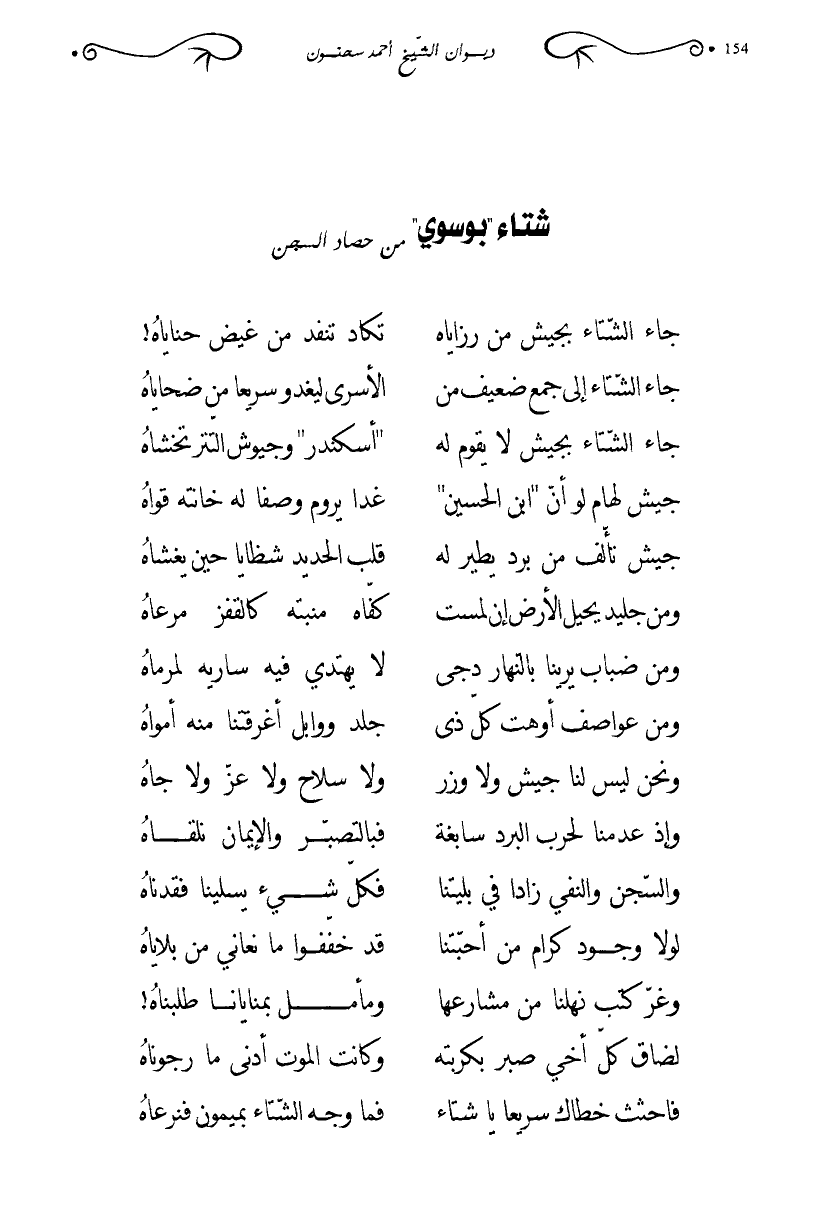 154 ديـوان الشّيخ أحمد سحنـون
شتاء "بوسوي" من حصاد السجن
جاء الشّتاء بجيش من رزاياه تكاد تنفد من غيض حناياهُ!
جاء الشّتاء إلى جمع ضعيف من الأسرى ليغدو سريعا من ضحاياهُ
جاء الشّتاء بجيش لا يقوم له "أسكندر" وجيوش التّتر تخشاهُ
جيش لهام لو أنّ "ابن الحسين" غدا يروم وصفا له خانته قواهُ
جيش تألّف من برد يطير له قلب الحديد شظايا حين يغشاهُ
ومن جليد يحيل الأرض إن لمست كفّاه منبته كالقفز مرعاهُ
ومن ضباب يرينا بالنّهار دجى لا يهتدي فيه ساريه لمرماهُ
ومن عواصف أوهت كلّ ذى جلد ووابل أغرقتنا منه أمواهُ
ونحن ليس لنا جيش ولا وزر ولا سلاح ولا عزّ ولا جاهُ
وإذ عدمنا لحرب البرد سابغة فبالتصبّـر والإيمان نلقـاهُ
والسّجن والنفي زادا في بليتنا فكلّ شـيء يسلينا فقدناهُ
لولا وجـود كرام من أحبّتنا قد خفّفـوا ما نعاني من بلاياهُ
وغرّ كتب نهلنا من مشارعها ومأمـل بمنايانـا طلبناهُ!
لضاق كلّ أخي صبر بكربته وكانت الموت أدنى ما رجوناهُ
فاحثث خطاك سريعا يا شتاء فما وجه الشّتاء بميمون فنرعاهُ